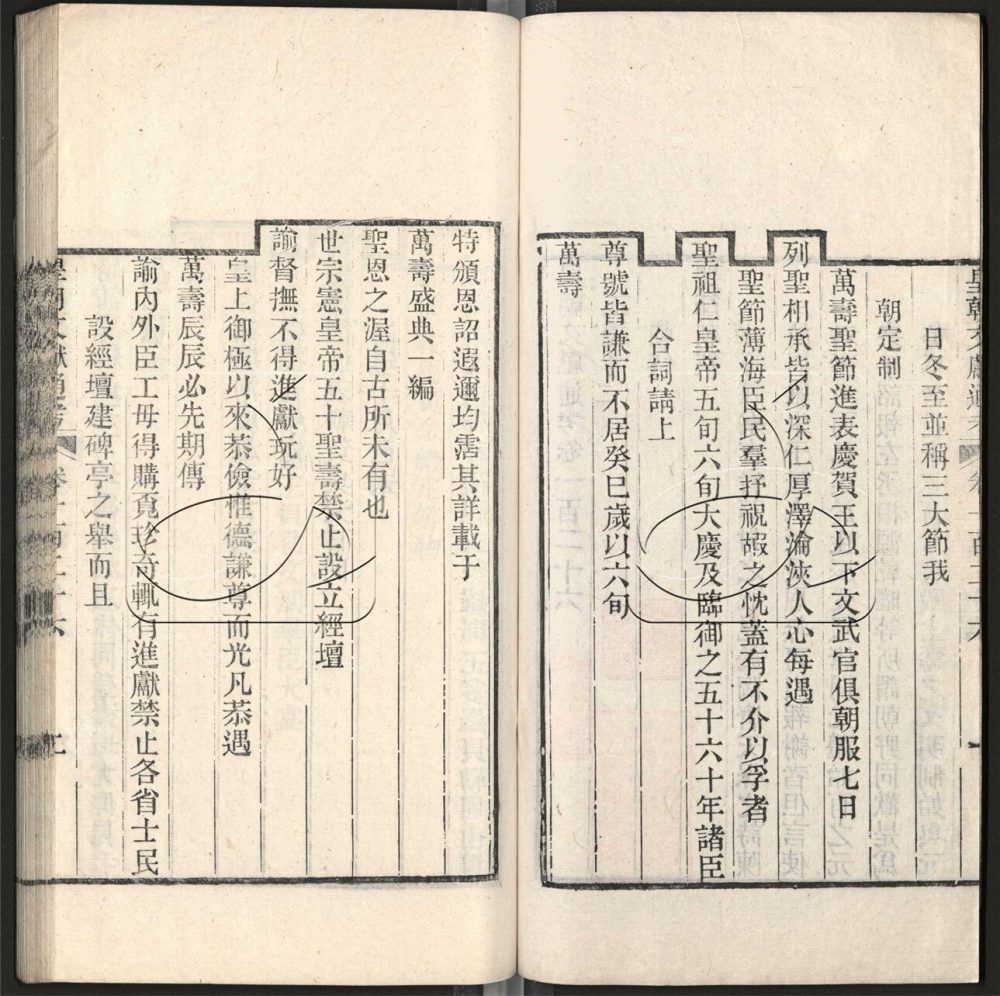 皇朝文獻通考
日冬至並稱三大節我
朝定制
萬壽聖節進表慶賀王以下文武官俱朝服七日
列聖相承皆以深仁厚澤淪浹人心每遇
聖節薄海臣民羣抒祝嘏之忱蓋有不介以孚者
聖祖仁皇帝五旬六旬大慶及臨御之五十六十年諸臣
合詞請上
尊號皆謙而不居癸巳歲以六旬
萬壽
特頒恩詔遐邇均霑其詳載于
萬壽盛典一編
聖恩之渥自古所未有也
世宗憲皇帝五十聖壽禁止設立經壇
諭督撫不得進獻玩好
皇上御極以來恭儉惟德謙尊而光凡恭遇
萬壽辰辰必先期傳
諭內外臣工毋得購覓珍奇輒有進獻禁止各省士民
設經壇建碑亭之舉而且
皇朝文獻通考 卷一百二十六